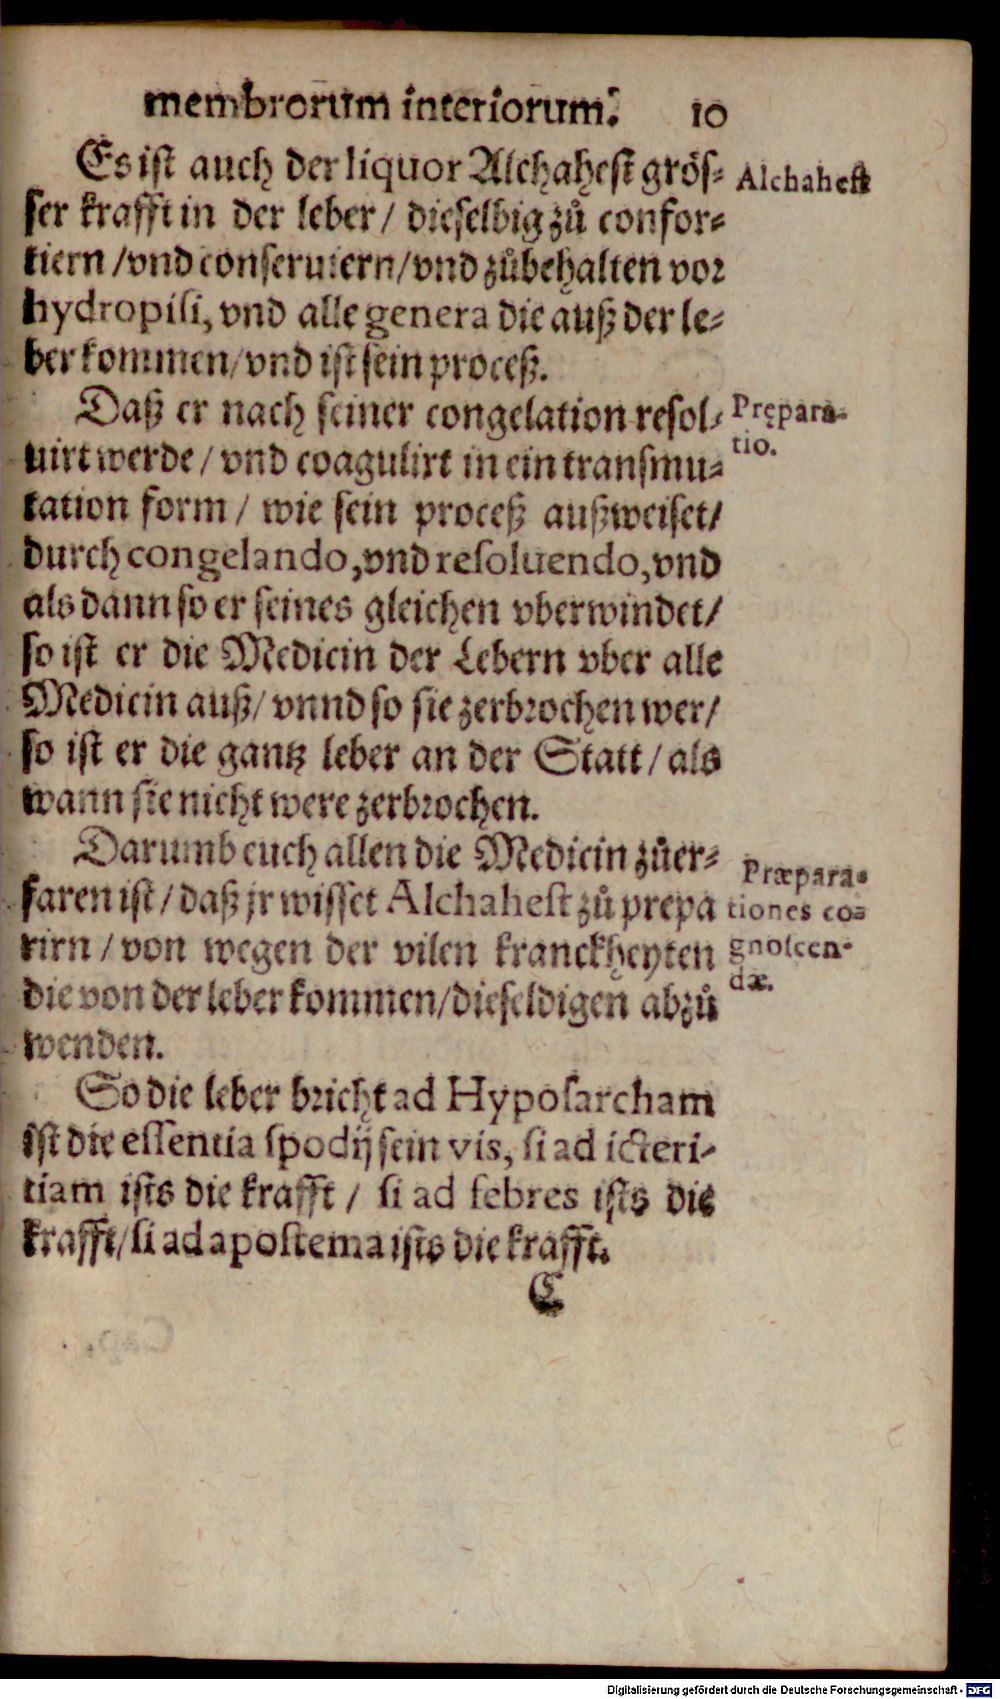 membrorum interiorum. 10
Es ist auch der liquor Alchahest grös- Alchahest
ser krafft in der leber / dieselbig zů confor-
tiern / vnd conseruiern / vnd zůbehalten vor
hydropisi, vnd alle genera die auß der le-
ber kommen / vnd ist sein proceß.
Daß er nach seiner congelation resol- Prępara-
uirt werde / vnd coagulirt in ein transmu- tio.
tation form / wie sein proceß außweiset /
durch congelando, vnd resoluendo, vnd
als dann so er seines gleichen vberwindet /
so ist er die Medicin der Lebern vber alle
Medicin auß / vnnd so sie zerbrochen wer /
so ist er die gantz leber an der Statt / als
wann sie nicht were zerbrochen.
Darumb euch allen die Medicin zůer- Præpara-
faren ist / daß jr wisset Alchahest zů prepa tiones co-
rirn / von wegen der vilen kranckheyten gnoscen-
die von der leber kommen / dieseldigen abzů dæ.
wenden.
So die leber bricht ad Hyposarcham
ist die essentia spodij sein vis, si ad icteri-
tiam ists die krafft / si ad febres ists die
krafft / si ad apostema ists die krafft.
C
Digitalisierung gefördert durch die Deutsche Forschungsgemeinschaft - DFG